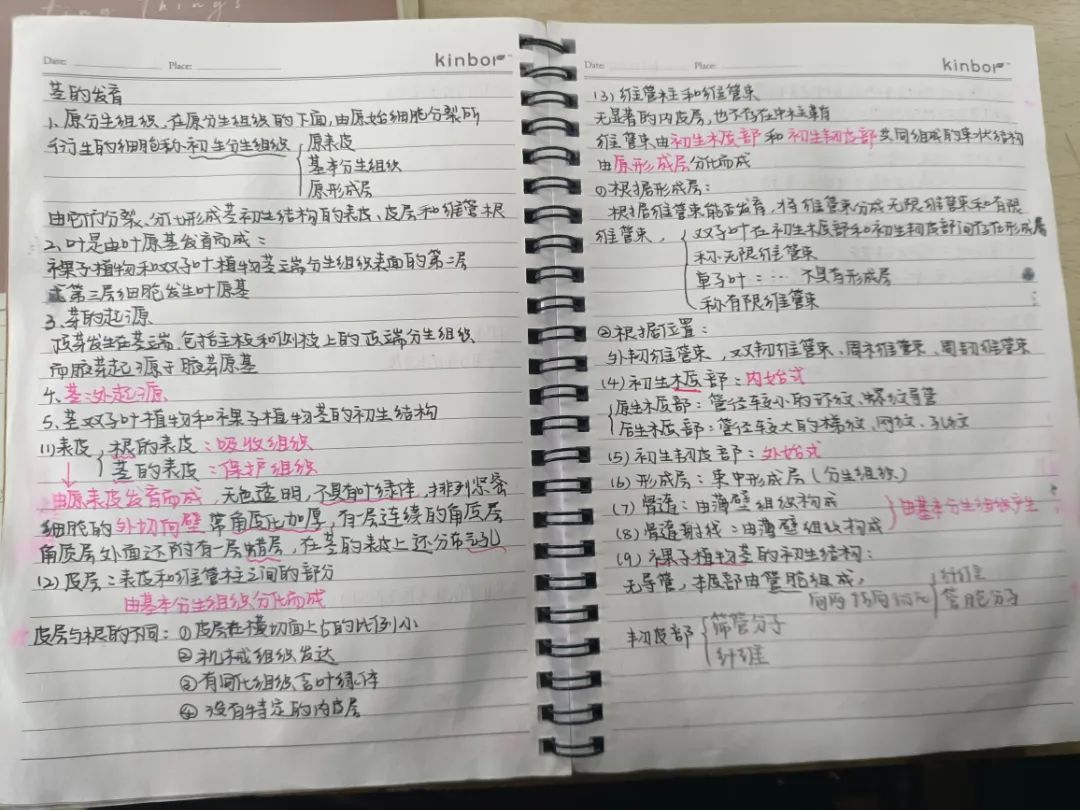 ting Things
Date: Place: kinbor
茎的发育
1、原分生组织，在原分生组织的下面，由原始细胞分裂所
衍生的细胞称初生分生组织 原表皮
基本分生组织
原形成层
由它们分裂、分化形成茎初生结构的表皮、皮层和维管柱
2、叶是由叶原基发育而成：
裸子植物和双子叶植物茎端分生组织表面的第二层
或第三层细胞发生叶原基
3、芽的起源
顶芽发生在茎端，包括主枝和侧枝上的顶端分生组织
而腋芽起源于腋芽原基
4、茎：外起源
5、茎双子叶植物和裸子植物茎的初生结构
(1)表皮，根的表皮：吸收组织
茎的表皮：保护组织
由原表皮发育而成，无色透明，不具有叶绿体，排列紧密
细胞的外切向壁常角质化加厚，有一层连续的角质层
角质层外面还附有一层蜡层，在茎的表皮上还分布气孔
(2)皮层：表皮和维管柱之间的部分
由基本分生组织分化而成
皮层与根的不同：①皮层在横切面上占的比例小
②机械组织发达
③有同化组织含叶绿体
④没有特定的内皮层
Date: Place: kinbor
(3)维管柱和维管束
无显著的内皮层，也不存在中柱鞘
维管束由初生木质部和初生韧皮部共同组成的束状结构
由原形成层分化而成
①根据形成层：
根据维管束能否发育，将维管束分成无限维管束和有限
维管束， 双子叶在初生木质部和初生韧皮部间存在形成层
称无限维管束
单子叶：… 不具有形成层
称有限维管束
②根据位置：
外韧维管束，双韧维管束、周木维管束、周韧维管束
(4)初生木质部：内始式
原生木质部：管径较小的环纹、螺纹导管
后生木质部：管径较大的梯纹、网纹、孔纹
(5)初生韧皮部：外始式
(6)形成层：束中形成层（分生组织）
(7)髓：由薄壁组织构成 由基本分生组织产生
(8)髓射线：由薄壁组织构成
(9)裸子植物茎的初生结构：
无导管，木质部由管胞组成， 纤维
管胞分子
韧皮部 筛管分子
纤维